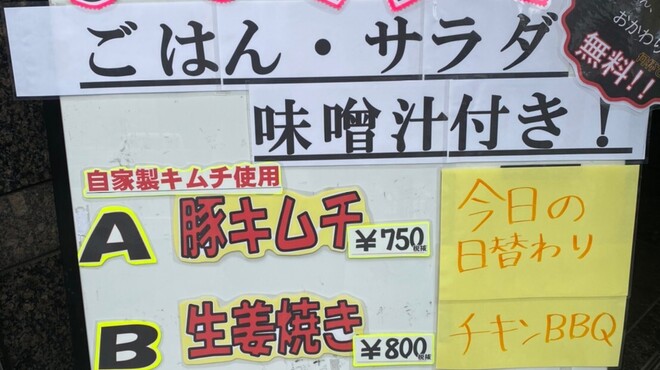 ごはん・サラダ
おかわり
無料!!
味噌汁付き!
自家製キムチ使用
A 豚キムチ ¥750
今日の
日替わり
B 生姜焼き ¥800
チキンBBQ